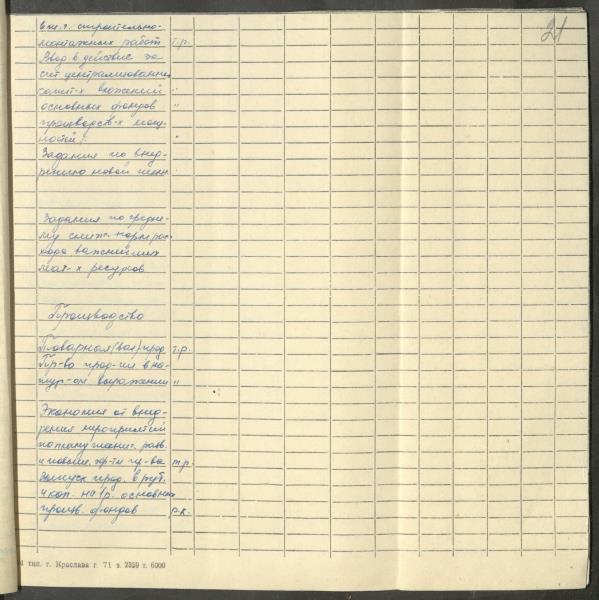 21
в т.ч. строительно-
монтажных работ т.р.
Ввод в действие за
счет централизованных
капит-х вложений "
основных фондов "
производств-х мощ-
ностей "
Задания по внед-
рению новой техн.
Задания по средне-
му сниж. норм рас-
хода важнейших
мат-х ресурсов
Производство
Товарная (вал) прод. т.р.
Пр-во прод-ии в на-
тур-ом выражении "
Экономия от внед-
рения мероприятий
по плану техн. разв.
и повыш. эф-ти пр-ва т.р.
Выпуск прод. в руб.
и коп. на 1 р. основных
произв. фондов р.к.
тип. г. Краслава г. 71 з. 2359 т. 6000